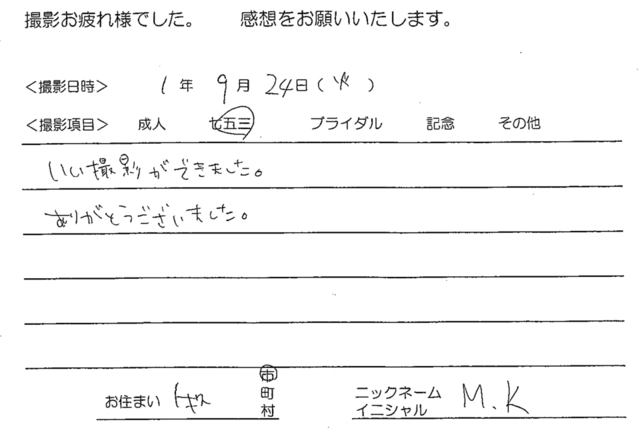 撮影お疲れ様でした。 感想をお願いいたします。
<撮影日時> 1 年 9 月 24 日 ( 火 )
<撮影項目> 成人 七五三 ブライダル 記念 その他
いい撮影ができました。
ありがとうございました。
お住まい 市 町 村
ニックネーム イニシャル M.K